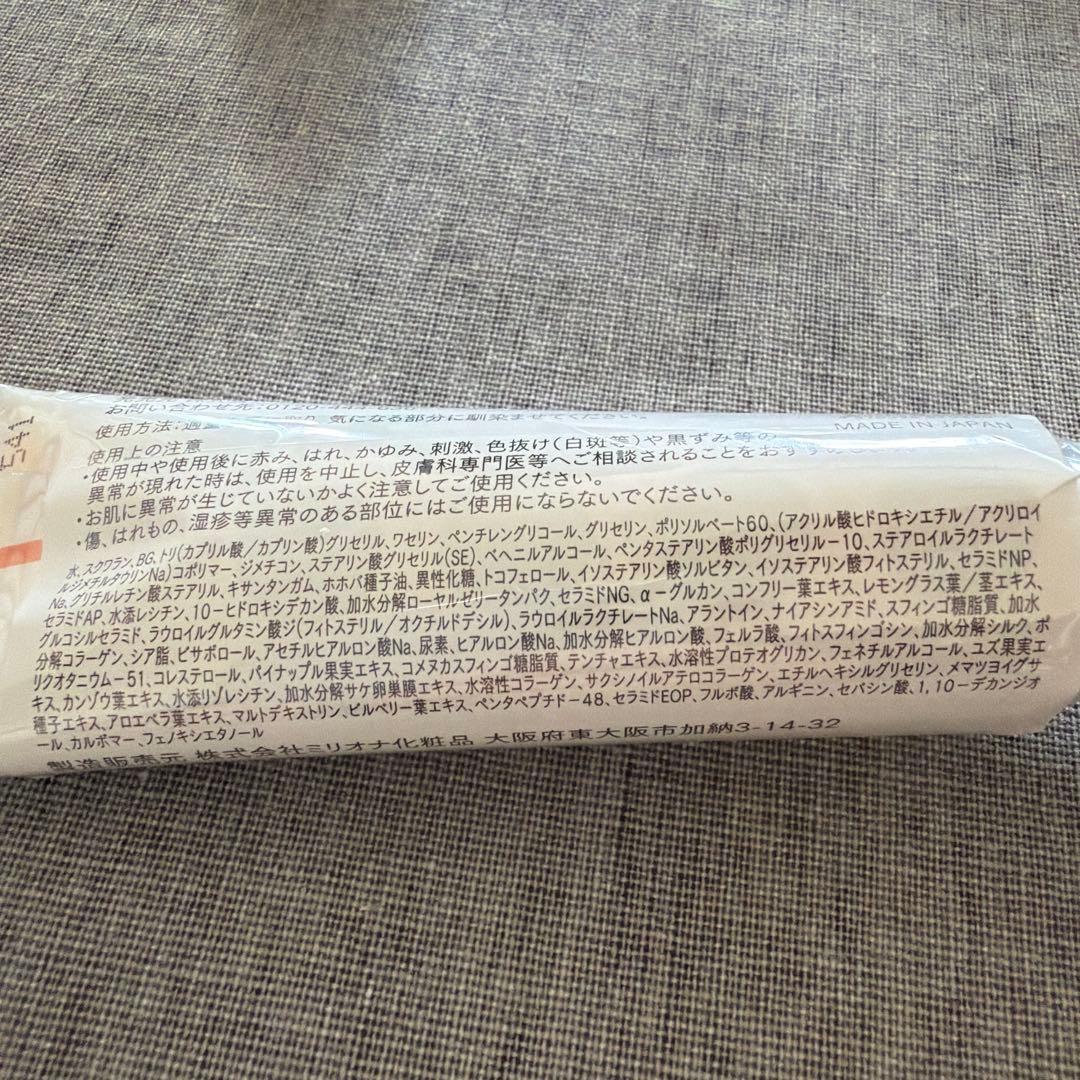 お問い合わせ先:0120
使用方法:適量 気になる部分に馴染ませてください。
MADE IN JAPAN
使用上の注意
・使用中や使用後に赤み、はれ、かゆみ、刺激、色抜け(白斑等)や黒ずみ等の
異常が現れた時は、使用を中止し、皮膚科専門医等へご相談されることをおすすめ
・お肌に異常が生じていないかよく注意してご使用ください。
・傷、はれもの、湿疹等異常のある部位にはご使用にならないでください。
水、スクワラン、BG、トリ(カプリル酸/カプリン酸)グリセリル、ワセリン、ペンチレングリコール、グリセリン、ポリソルベート60、(アクリル酸ヒドロキシエチル/アクリロイ
ルジメチルタウリンNa)コポリマー、ジメチコン、ステアリン酸グリセリル(SE)、ベヘニルアルコール、ペンタステアリン酸ポリグリセリル-10、ステアロイルラクチレート
Na、グリチルレチン酸ステアリル、キサンタンガム、ホホバ種子油、異性化糖、トコフェロール、イソステアリン酸ソルビタン、イソステアリン酸フィトステリル、セラミドNP、
セラミドAP、水添レシチン、10-ヒドロキシデカン酸、加水分解ローヤルゼリータンパク、セラミドNG、α-グルカン、コンフリー葉エキス、レモングラス葉/茎エキス、
グルコシルセラミド、ラウロイルグルタミン酸ジ(フィトステリル/オクチルドデシル)、ラウロイルラクチレートNa、アラントイン、ナイアシンアミド、スフィンゴ糖脂質、加水
分解コラーゲン、シア脂、ビサボロール、アセチルヒアルロン酸Na、尿素、ヒアルロン酸Na、加水分解ヒアルロン酸、フェルラ酸、フィトスフィンゴシン、加水分解シルク、ポ
リクオタニウム-51、コレステロール、パイナップル果実エキス、コメヌカスフィンゴ糖脂質、テンチャエキス、水溶性プロテオグリカン、フェネチルアルコール、ユズ果実エ
キス、カンゾウ葉エキス、水添リゾレシチン、加水分解サケ卵巣膜エキス、水溶性コラーゲン、サクシノイルアテロコラーゲン、エチルヘキシルグリセリン、メマツヨイグサ
種子エキス、アロエベラ葉エキス、マルトデキストリン、ビルベリー葉エキス、ペンタペプチド-48、セラミドEOP、フルボ酸、アルギニン、セバシン酸、1,10-デカンジオ
ール、カルボマー、フェノキシエタノール
製造販売元 株式会社ミリオナ化粧品 大阪府東大阪市加納3-14-32